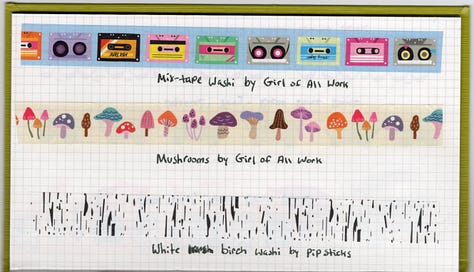 Mix-tape Washi by Girl of All Work
Mushrooms by Girl of All Work
White birch Washi by Pipsticks